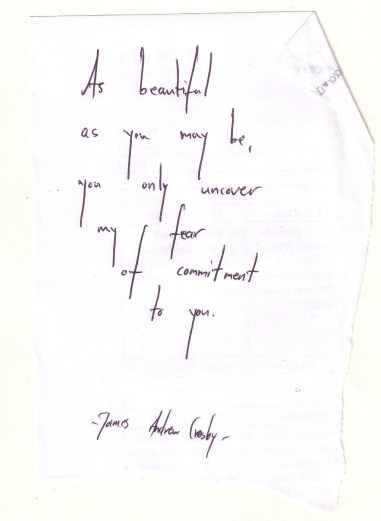 As beautiful
as you may be,
you only uncover
my fear
of commitment
to you.
-James Andrew Crosby-